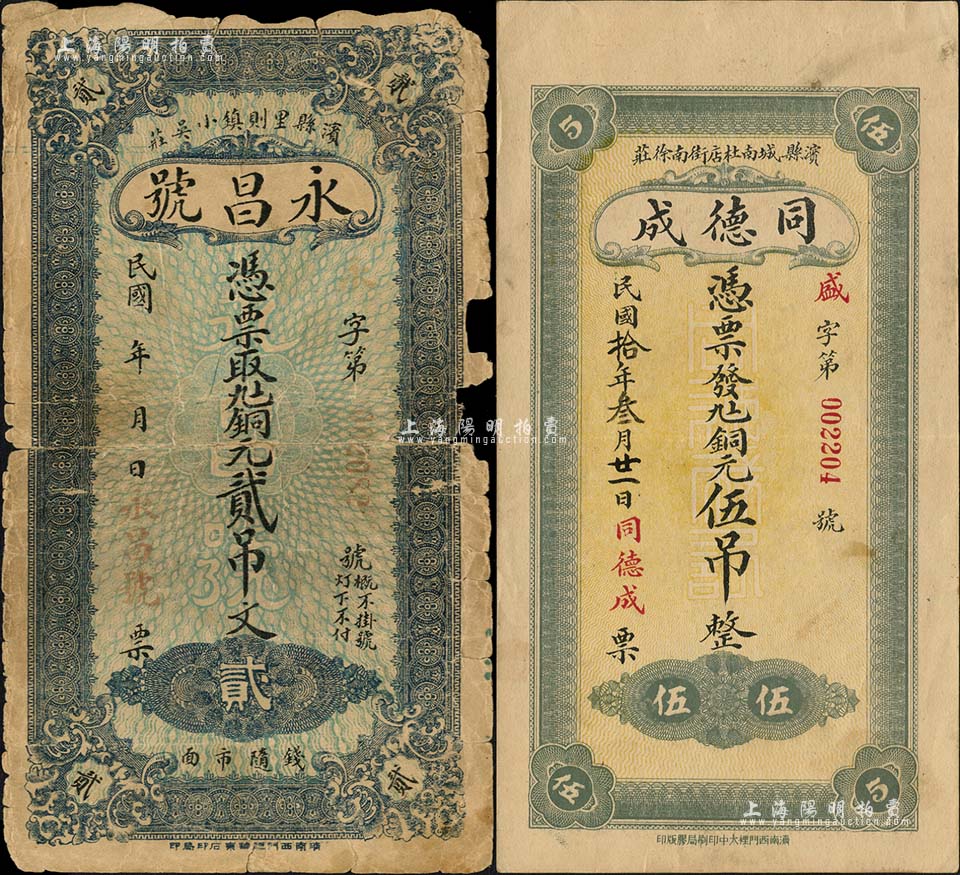 上海陽明拍賣
www.yangmingauction.com
貳
貳
濱縣里則鎮小吳莊
永昌號
字第
號
概不掛號
灯下不付
憑票取九八銅元貳吊文
民國 年 月 日
永昌號
票
貳
錢隨市面
貳
貳
上海陽明拍賣
www.yangmingauction.com
伍
濱縣城南杜店街南徐莊
同德成
盛字第 002204 號
憑票發九八銅元伍吊整
民國拾年叁月廿一日同德成票
伍 伍
伍
濟南西門裡大中印刷局膠版印
上海陽明拍賣
www.yangmingauction.com